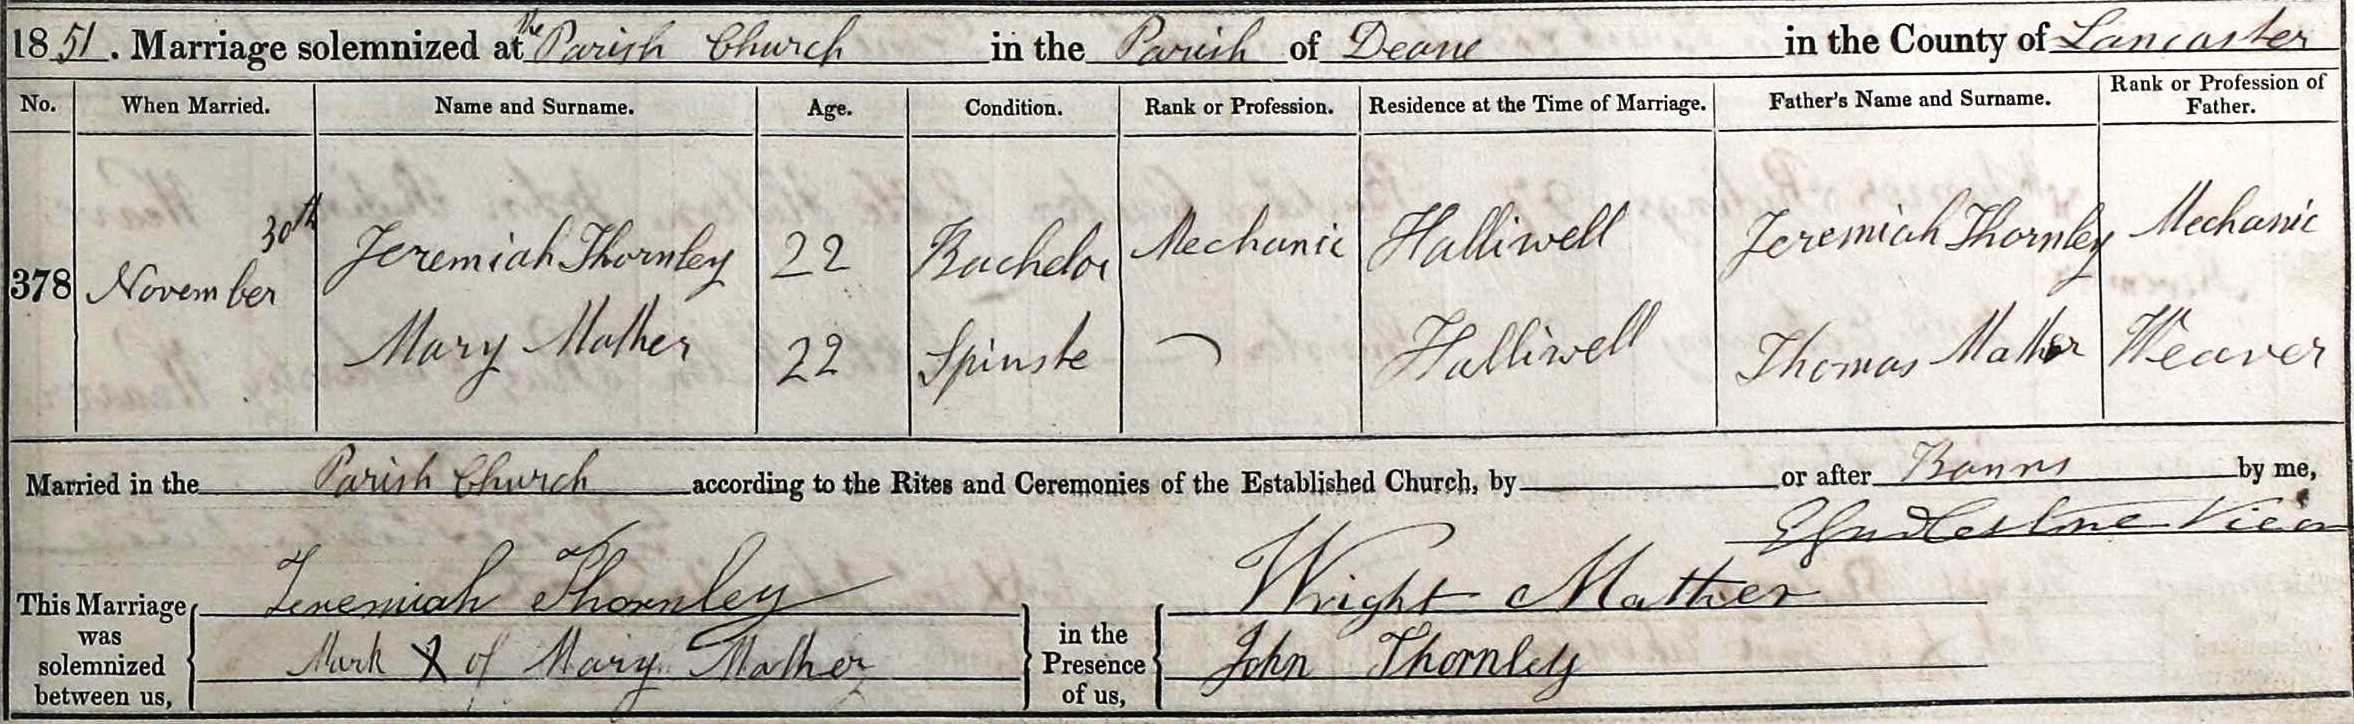 1851. Marriage solemnized at the Parish Church in the Parish of Deane in the County of Lancaster
No. When Married. Name and Surname. Age. Condition. Rank or Profession. Residence at the Time of Marriage. Father's Name and Surname. Rank or Profession of Father.
378 November 30th Jeremiah Thornley 22 Bachelor Mechanic Halliwell Jeremiah Thornley Mechanic
Mary Mather 22 Spinste Halliwell Thomas Mather Weaver
Married in the Parish Church according to the Rites and Ceremonies of the Established Church, by or after Banns by me,
Vicar
This Marriage was solemnized between us, Jeremiah Thornley in the Presence of us, Wright Mather
Mark X of Mary Mather John Thornley